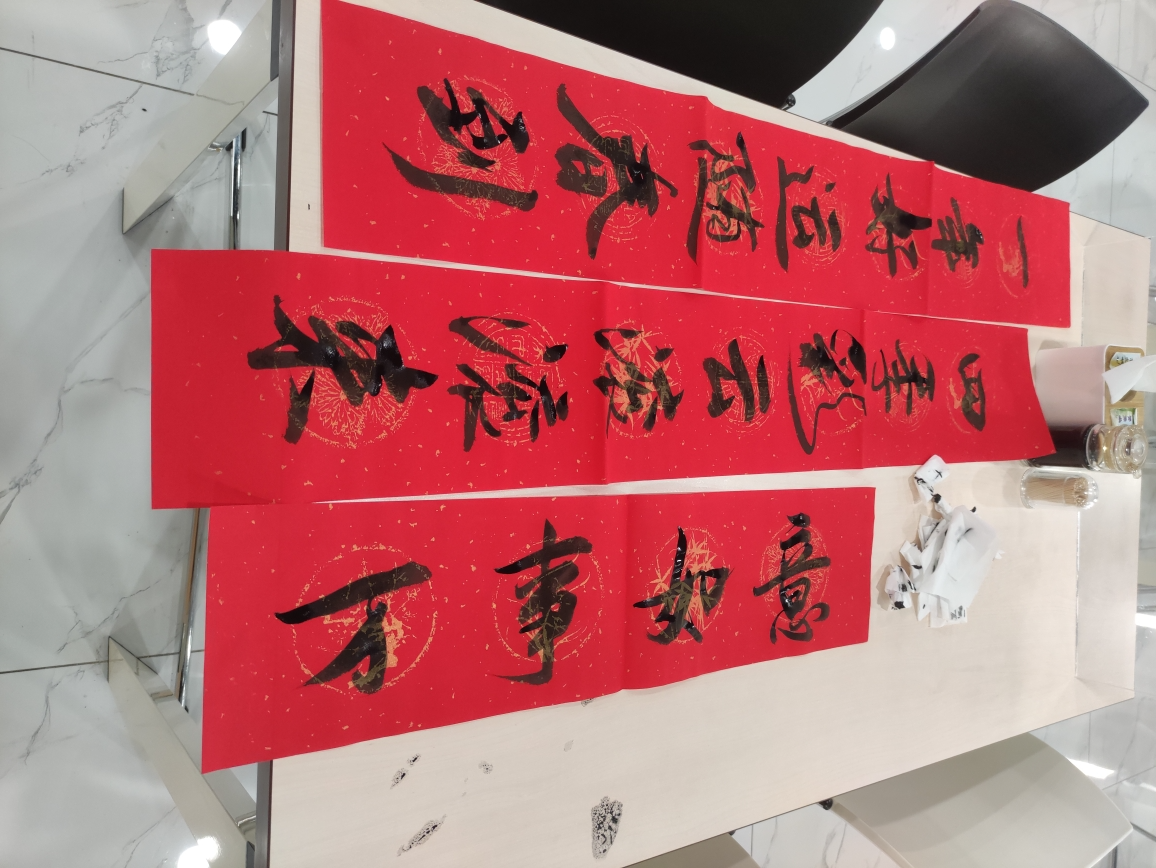 一年好运随春到
四季彩云滚滚来
万事如意